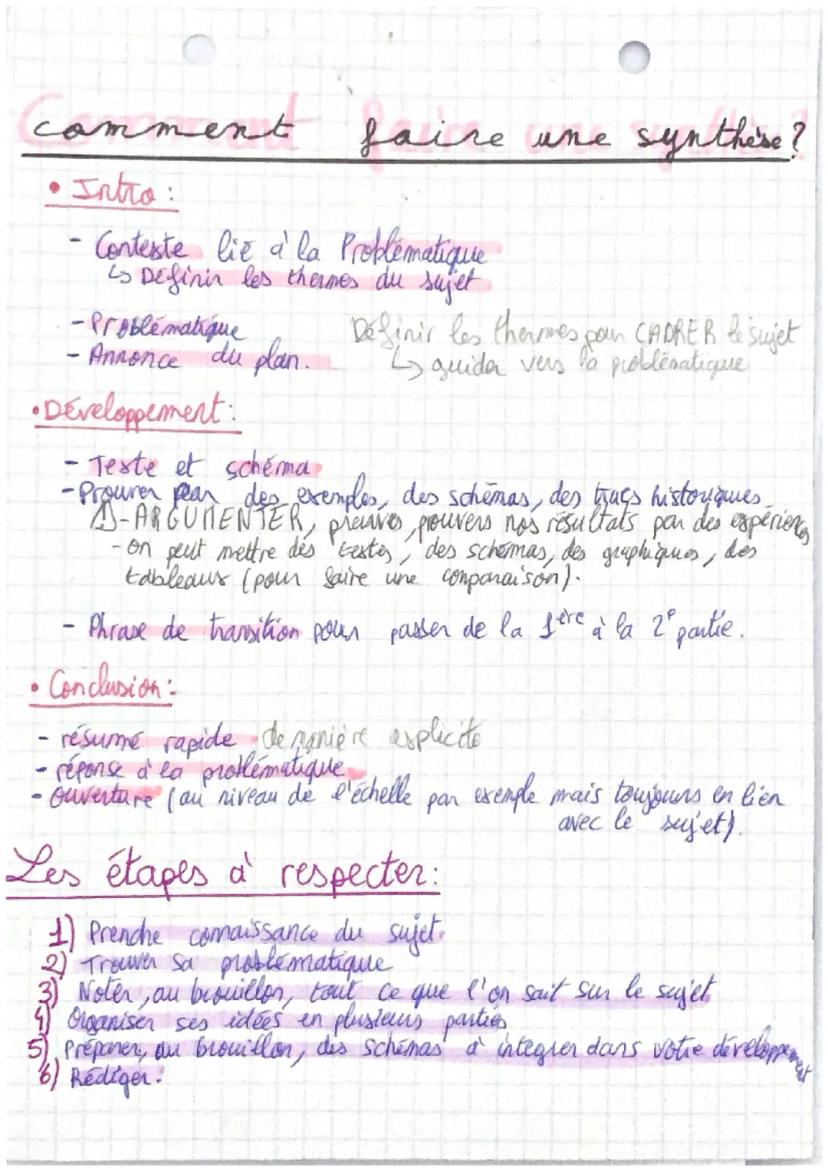 comment faire une synthèse?
• Intro:
- Contexte lié à la Problématique
↳ Définir les thermes du sujet
- Problématique
Définir les thermes pour CADRER le sujet
- Annonce du plan.
↳ guider vers la problématique
• Développement:
- Texte et schéma
- Prouver par des exemples, des schémas, des trucs historiques
⚠-ARGUMENTER, preuves, prouvers nos résultats par des expériences
- on peut mettre des textes, des schémas, des graphiques, des
tableaux (pour faire une comparaison).
- Phrase de transition pour passer de la 1ère à la 2e partie.
• Conclusion:
- résumé rapide de manière explicite
- réponse à la problématique
- Ouverture (au niveau de l'échelle par exemple mais toujours en lien
avec le sujet).
Les étapes à respecter:
1) Prendre connaissance du sujet.
2) Trouver sa problématique
3) Noter, au brouillon, tout ce que l'on sait sur le sujet
4) Organiser ses idées en plusieurs parties
5) Préparer, au brouillon, des schémas à intégrer dans votre développement
6) Rédiger!